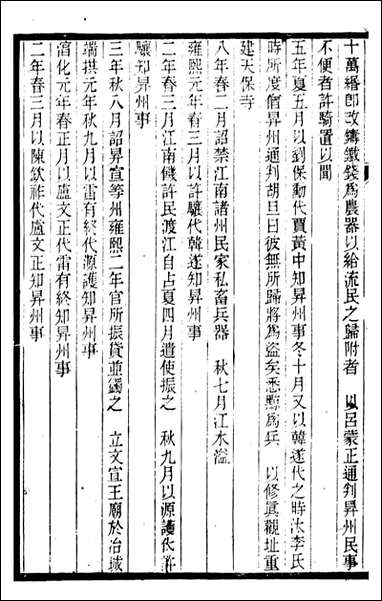 十萬緡卽改鑄鐵錢爲農器以給流民之歸附者　以呂蒙正通判昇州民事
不便者許騎置以聞
五年夏五月以劉保勳代賈黃中知昇州事冬十月又以韓遂代之時汰李氏
時所度僧昇州通判胡旦曰彼無所歸將爲盜矣悉黥爲兵　以修眞觀址重
建天保寺
八年春二月詔禁江南諸州民家私畜兵器　秋七月江水溢
雍熙元年春三月以許驤代韓遂知昇州事
二年春三月江南饑許民渡江自占夏四月遣使振之　秋九月以源護代許
驤知昇州事
三年秋八月詔昇宣等州雍熙二年官所振貸並蠲之　立文宣王廟於冶城
端拱元年秋九月以雷有終代源護知昇州事
淳化元年春正月以盧文正代雷有終知昇州事
二年春三月以陳欽祚代盧文正知昇州事